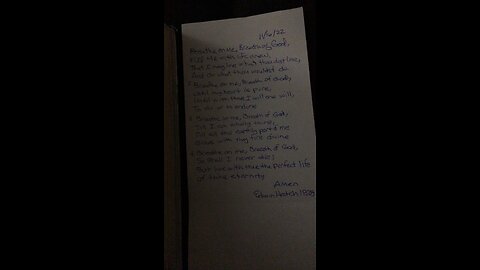 11/6/22
Breathe on me, Breath of God,
Fill me with life anew,
That I may love what thou dost love,
And do what thou wouldst do.
2 Breathe on me, Breath of God,
Until my heart is pure,
Until with thee I will one will,
To do or to endure
3 Breathe on me, Breath of God,
Till I am wholly thine,
Till all this earthly part of me
Glows with thy fire divine
4 Breathe on me, Breath of God,
So shall I never die;
But live with thee the perfect life
of thine eternity
Amen
Edwin Hatch 1878